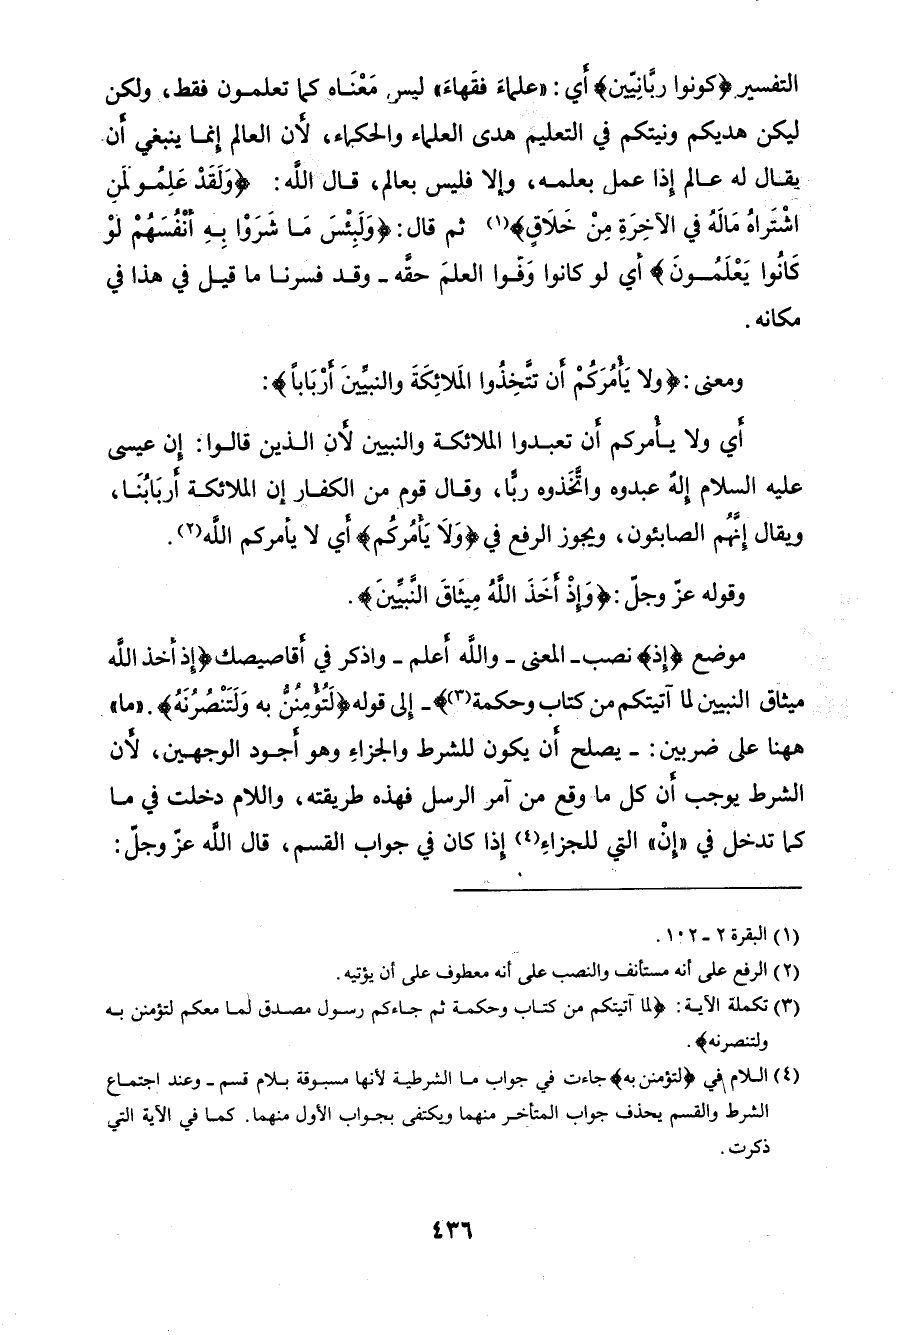 التفسير ﴿كونوا ربَّانِيّين﴾ أَي: «علماءَ فقَهاءَ» ليس مَعْنَاه كما تعلمون فقط، ولكن
ليكن هديكم ونيتكم في التعليم هدى العلماء والحكماء، لأَن العالم إنما ينبغي أَن
يقال له عالم إذا عمل بعلمه، وإلا فليس بعالم، قال اللَّه: ﴿وَلَقَدْ عَلِمُو لَمَنِ
اشْتَراهُ مَالَهُ في الآخِرَةِ مِنْ خَلَاقٍ﴾(١) ثم قال: ﴿وَلَبِئْسَ مَا شَرَوْا بِهِ أنْفُسَهُمْ لَوْ
كَانُوا يَعْلَمُونَ﴾ أَي لو كانوا وَفَوا العلمَ حقَّه ـ وقد فسرنا ما قيل في هذا في
مكانه.
ومعنى: ﴿ولا يَأْمُرَكُمْ أَن تتَّخِذُوا المَلائِكَةَ والنبيِّينَ أَرْبَاباً﴾:
أَي ولا يأمركم أَن تعبدوا الملائكة والنبيين لأن الذين قالوا: إن عيسى
عليه السلام إلهٌ عبدوه واتَّخذوه ربًّا، وقال قوم من الكفار إن الملائكة أَربَابُنَا،
ويقال إنَّهُم الصابئون، ويجوز الرفع في ﴿وَلَا يَأْمُركُم﴾ أَي لا يأمركم اللَّه(٢).
وقوله عزّ وجلّ: ﴿وَإِذْ أَخَذَ اللَّهُ مِيثَاقَ النَّبِيِّينَ﴾.
موضع ﴿إذ﴾ نصب ـ المعنى ـ واللَّه أَعلم ـ واذكر في أَقاصيصك ﴿إذ أخذ اللَّه
ميثاق النبيين لما آتيتكم من كتاب وحكمة(٣)﴾ ـ إلى قوله ﴿لَتُؤْمِنُنَّ به وَلَتَنْصُرُنَهُ﴾. «ما»
ههنا على ضربين: ـ يصلح أَن يكون للشرط والجزاءِ وهو أَجود الوجهين، لأَن
الشرط يوجب أَن كل ما وقع من آمر الرسل فهذه طريقته، واللام دخلت في ما
كما تدخل في «إنْ» التي للجزاءِ(٤) إذا كان في جواب القسم، قال اللَّه عزّ وجلّ:
(١) البقرة ٢ ـ ١٠٢.
(٢) الرفع على أنه مستأنف والنصب على أنه معطوف على أن يؤتيه.
(٣) تكملة الآية: ﴿لما آتيتكم من كتاب وحكمة ثم جاءكم رسول مصدق لما معكم لتؤمنن به
ولتنصرنه﴾.
(٤) اللام في ﴿لتؤمنن به﴾ جاءت في جواب ما الشرطية لأنها مسبوقة بلام قسم ـ وعند اجتماع
الشرط والقسم يحذف جواب المتأخر منهما ويكتفى بجواب الأول منهما. كما في الآية التي
ذكرت.
٤٣٦